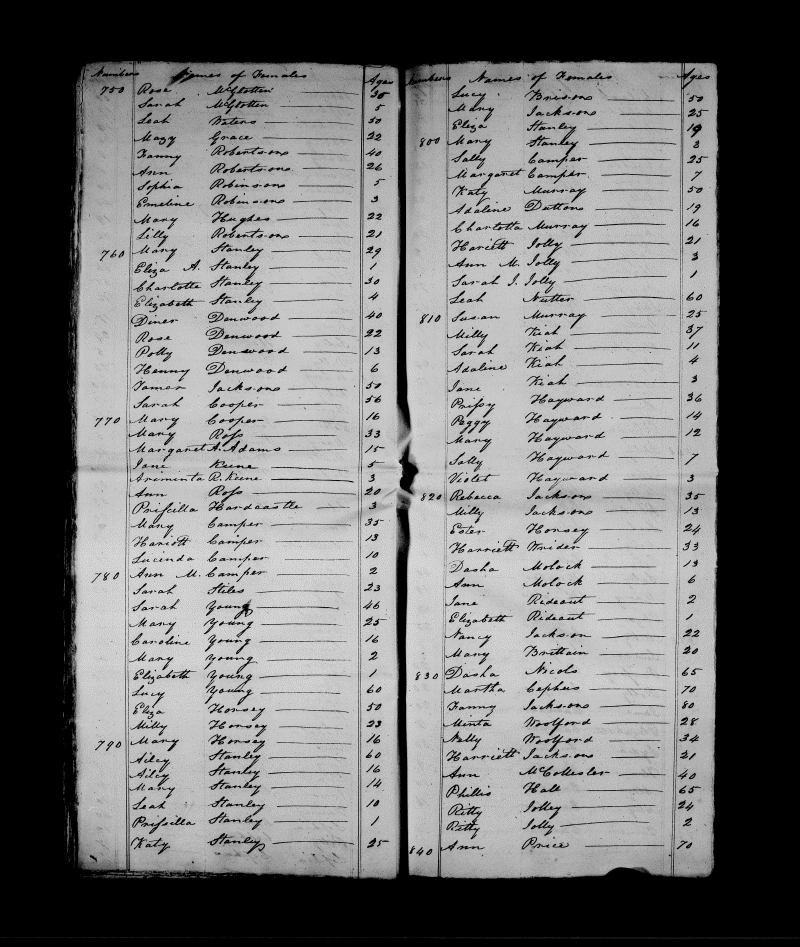 Numbers Names of Females Ages
750 Rose McGlotten 30
Sarah McGlotten 5
Leah Waters 50
Mary Grace 22
Fanny Robertsons 40
Ann Robertsons 26
Sophia Robinsons 5
Emeline Robinsons 3
Mary Hughes 22
Lilly Robertsons 21
760 Mary Stanley 29
Eliza A. Stanley 1
Charlotte Stanley 30
Elizabeth Stanley 4
Diner Denwood 40
Rose Denwood 22
Polly Denwood 13
Henny Denwood 6
Tamer Jacksons 50
Sarah Cooper 56
770 Mary Cooper 16
Mary Ross 33
Margaret A. Adams 15
Jane Keene 5
Araminta R. Keene 3
Ann Ross 20
Priscilla Hardcastle 3
Mary Camper 35
Hariott Camper 13
Lucinda Camper 10
780 Ann M. Camper 2
Sarah Stiles 23
Sarah Young 46
Mary Young 25
Caroline Young 16
Mary Young 2
Elizabeth Young 1
Lucy Young 60
Eliza Horsey 50
Milly Horsey 23
790 Mary Horsey 16
Ailcy Stanley 60
Ailcy Stanley 16
Mary Stanley 14
Leah Stanley 10
Prissilla Stanley 1
Katy Stanley 25
Numbers Names of Females Ages
Lucy Brisons 50
Mary Jacksons 25
Eliza Stanley 19
800 Mary Stanley 3
Sally Camper 25
Margaret Camper 7
Katy Murray 50
Adaline Dattons 19
Charlotta Murray 16
Hariett Jolly 21
Ann M. Jolly 3
Sarah J. Jolly 1
Leah Nutter 60
810 Susan Murray 25
Milly Kiah 37
Sarah Kiah 11
Adaline Kiah 4
Jane Kiah 3
Prissy Hayward 36
Peggy Hayward 14
Mary Hayward 12
Sally Hayward 7
Violet Hayward 3
820 Rebecca Jacksons 35
Milly Jacksons 13
Ester Horsey 24
Harriett Wrider 33
Dasha Molock 13
Ann Molock 6
Jane Rideout 2
Elizabeth Rideout 1
Nancy Jackson 22
Mary Brittain 20
830 Dasha Nicols 65
Martha Cephus 70
Fanny Jacksons 80
Minta Woolford 28
Nelly Woolford 34
Harriett Jacksons 21
Ann McCollester 40
Phillis Hall 65
Kitty Jolley 24
Kitty Jolly 2
840 Ann Price 70